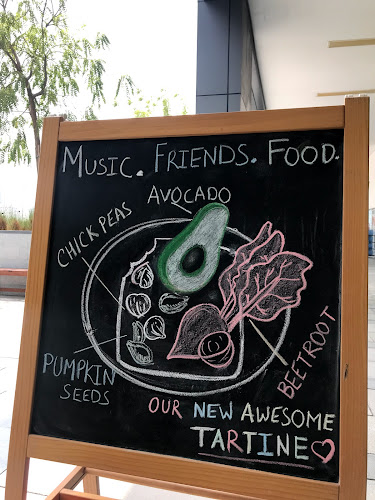 MUSIC. FRIENDS. FOOD.
AVOCADO
CHICK PEAS
PUMPKIN
SEEDS
BEETROOT
OUR NEW AWESOME
TARTINE